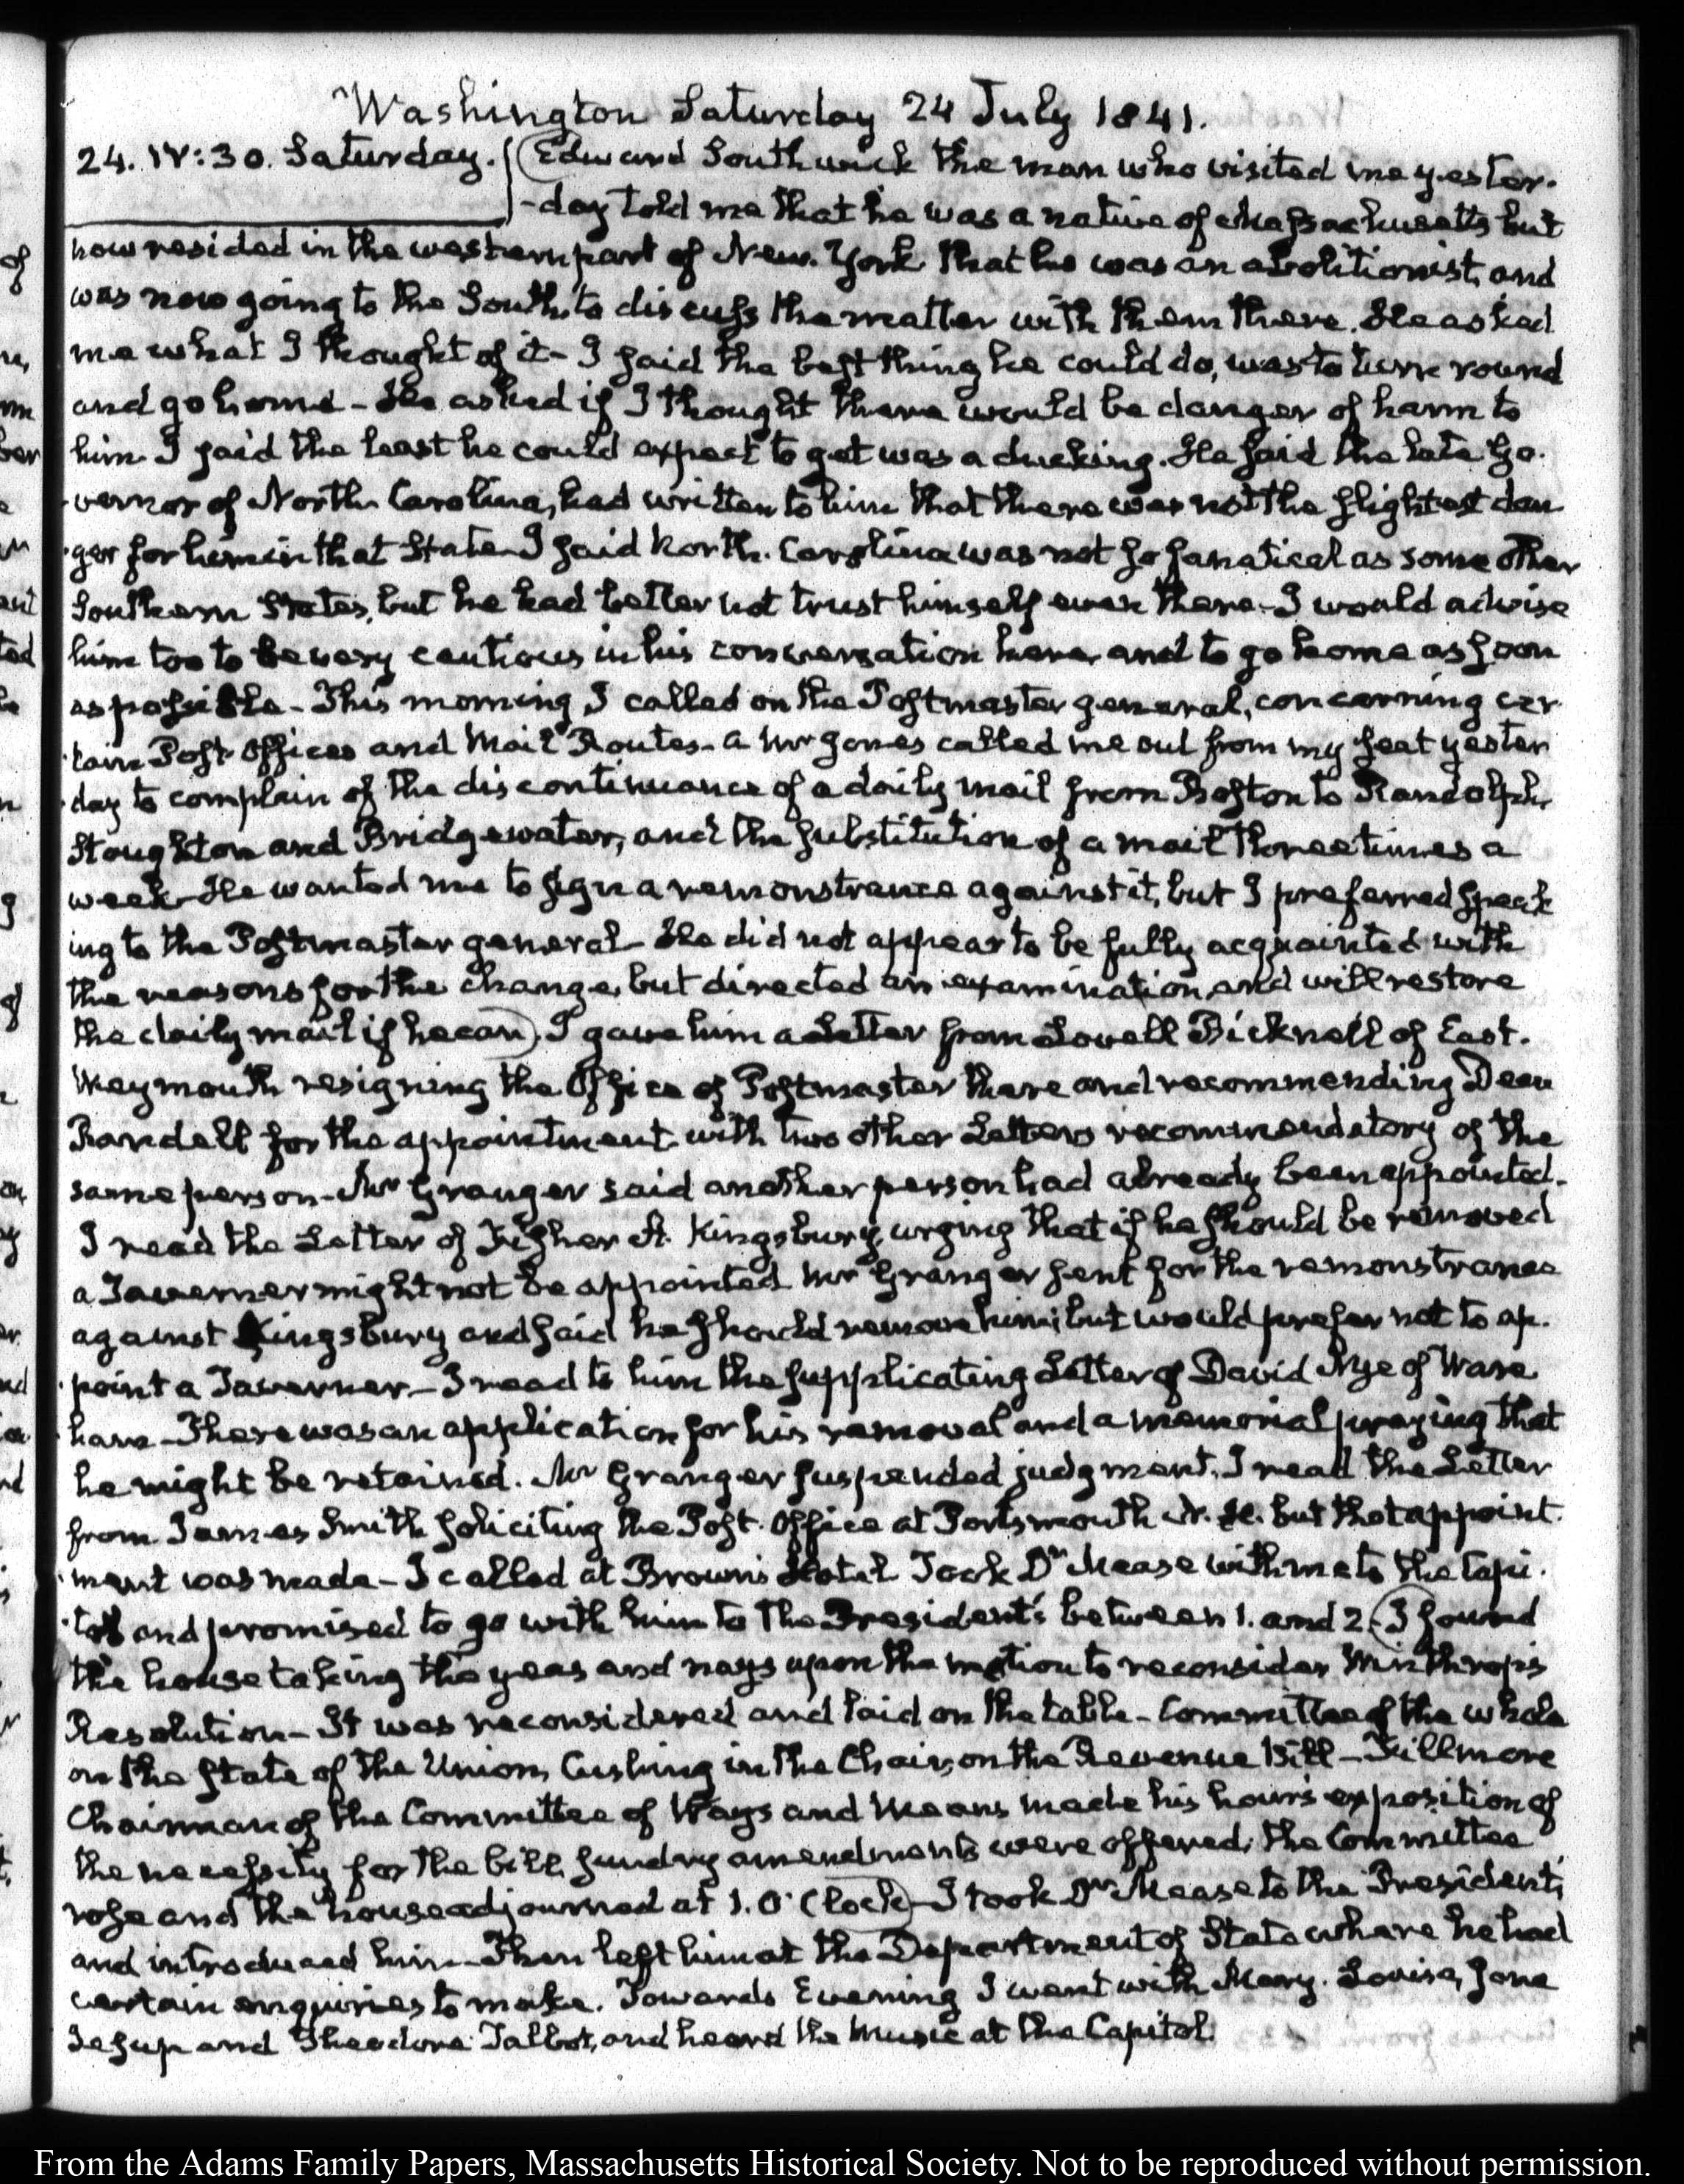 Washington Saturday 24 July 1841.
24. IV:30. Saturday. Edward Southwick the man who visited me yester-
-day told me that he was a native of Massachusetts but
now resided in the western part of New-York that he was an abolitionist, and
was now going to the South, to discuss the matter with them there. He asked
me what I thought of it- I said the best thing he could do, was to turn round
and go home- He asked if I thought there would be danger of harm to
him. I said the least he could expect to get was a ducking. He said the late Go-
-vernor of North-Carolina, had written to him that there was not the slightest dan
-ger for him in that State- I said North-Carolina was not so fanatical as some other
Southern States, but he had better not trust himself even there- I would advise
him too to be very cautious in his conversation here, and to go home as soon
as possible- This morning, I called on the Postmaster general, concerning cer-
-tain Post-Offices and Mail Routes- a Mr Jones called me out from my seat yester
-day to complain of the discontinuance of a daily mail from Boston to Randolph,
Stoughton and Bridgewater, and the substitution of a mail three times a
week- He wanted me to sign a remonstrance against it, but I preferred speak
ing to the Postmaster general- He did not appear to be fully acquainted with
the reasons for the change, but directed an examination, and will restore
the daily mail if he can). I gave him a Letter from Lovell Bicknell of East-
Weymouth resigning the Office of Postmaster there and recommending
Randell for the appointment with two other Letters recommendatory of the
same person- Mr Granger said another person had already been appointed.
I read the Letter of Fisher A. Kingsbury, urging that if he should be removed
a Taverner might not be appointed Mr Granger sent for the remonstrance
against Kingsbury and said he should remove him; but would prefer not to ap-
-point a Taverner- I read to him the supplicating Letter of David Nye of Ware
ham- There was an application for his removal and a memorial praying that
he might be retained. Mr Granger suspended judgment. I read the Letter
from James Smith soliciting the Post-Office at Portsmouth N. H. but that appoint-
-ment was made- I called at Brown's Hotel Took Dr Mease with me to the Capi-
-tol and promised to go with him to the President's between 1. and 2. (I found
the house taking the yeas and nays upon the motion to reconsider Winthrop's
Resolution- It was reconsidered and laid on the table- Committee of the whole
on the State of the Union, Cushing in the Chair, on the Revenue Bill- Fillmore
Chairman of the Committee of Ways and Means made his hour's exposition of
the necessity for the bill, sundry amendments were offered; the Committee
rose and the house adjourned at 1. O'Clock)- I took Dr Mease to the President,
and introduced him- Then left him at the Department of State where he had
certain enquiries to make. Towards Evening I went with Mary-Louisa, Jane
Jesup and Theodore Talbot, and heard the Music at the Capitol.
From the Adams Family Papers, Massachusetts Historical Society. Not to be reproduced without permission.